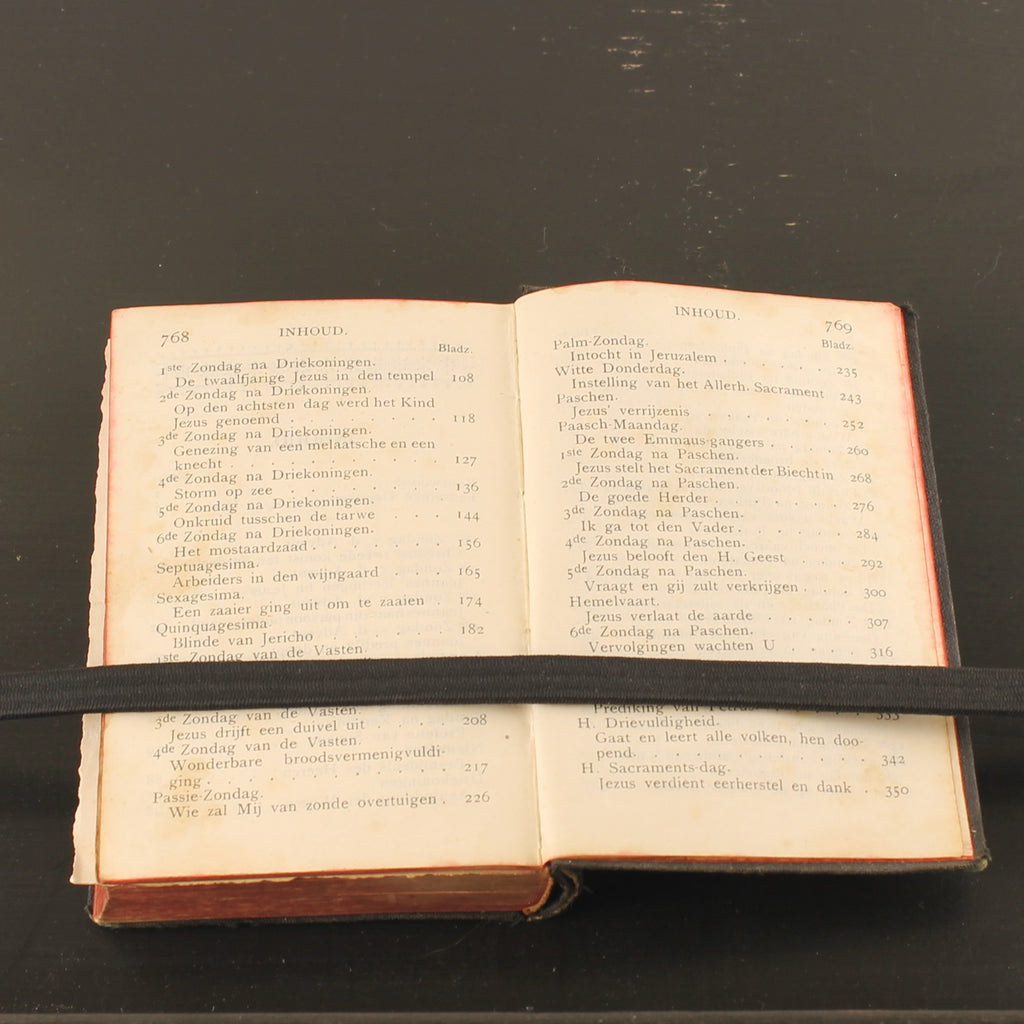 768
INHOUD.
Bladz.
1ste Zondag na Driekoningen.
De twaalfjarige Jezus in den tempel 108
2de Zondag na Driekoningen.
Op den achtsten dag werd het Kind
Jezus genoemd . . . . . . . . 118
3de Zondag na Driekoningen.
Genezing van een melaatsche en een
knecht . . . . . . . . . . . 127
4de Zondag na Driekoningen.
Storm op zee . . . . . . . . 136
5de Zondag na Driekoningen.
Onkruid tusschen de tarwe . . . 144
6de Zondag na Driekoningen.
Het mostaardzaad . . . . . . . 156
Septuagesima.
Arbeiders in den wijngaard . . . 165
Sexagesima.
Een zaaier ging uit om te zaaien . 174
Quinquagesima.
Blinde van Jericho . . . . . . 182
1ste Zondag van de Vasten.
3de Zondag van de Vasten.
Jezus drijft een duivel uit . . . . 208
4de Zondag van de Vasten.
Wonderbare broodsvermenigvuldi-
ging . . . . . . . . . . . . 217
Passie-Zondag.
Wie zal Mij van zonde overtuigen . 226
INHOUD.
769
Bladz.
Palm-Zondag.
Intocht in Jeruzalem . . . . . . 235
Witte Donderdag.
Instelling van het Allerh. Sacrament 243
Paschen.
Jezus' verrijzenis . . . . . . . 252
Paasch-Maandag.
De twee Emmaus-gangers . . . . 260
1ste Zondag na Paschen.
Jezus stelt het Sacrament der Biecht in 268
2de Zondag na Paschen.
De goede Herder . . . . . . . 276
3de Zondag na Paschen.
Ik ga tot den Vader . . . . . . 284
4de Zondag na Paschen.
Jezus belooft den H. Geest . . . 292
5de Zondag na Paschen.
Vraagt en gij zult verkrijgen . . . 300
Hemelvaart.
Jezus verlaat de aarde . . . . . 307
6de Zondag na Paschen.
Vervolgingen wachten U . . . . 316
Prediking van Petrus 333
H. Drievuldigheid.
Gaat en leert alle volken, hen doo-
pend . . . . . . . . . . . . 342
H. Sacraments-dag.
Jezus verdient eerherstel en dank . 350